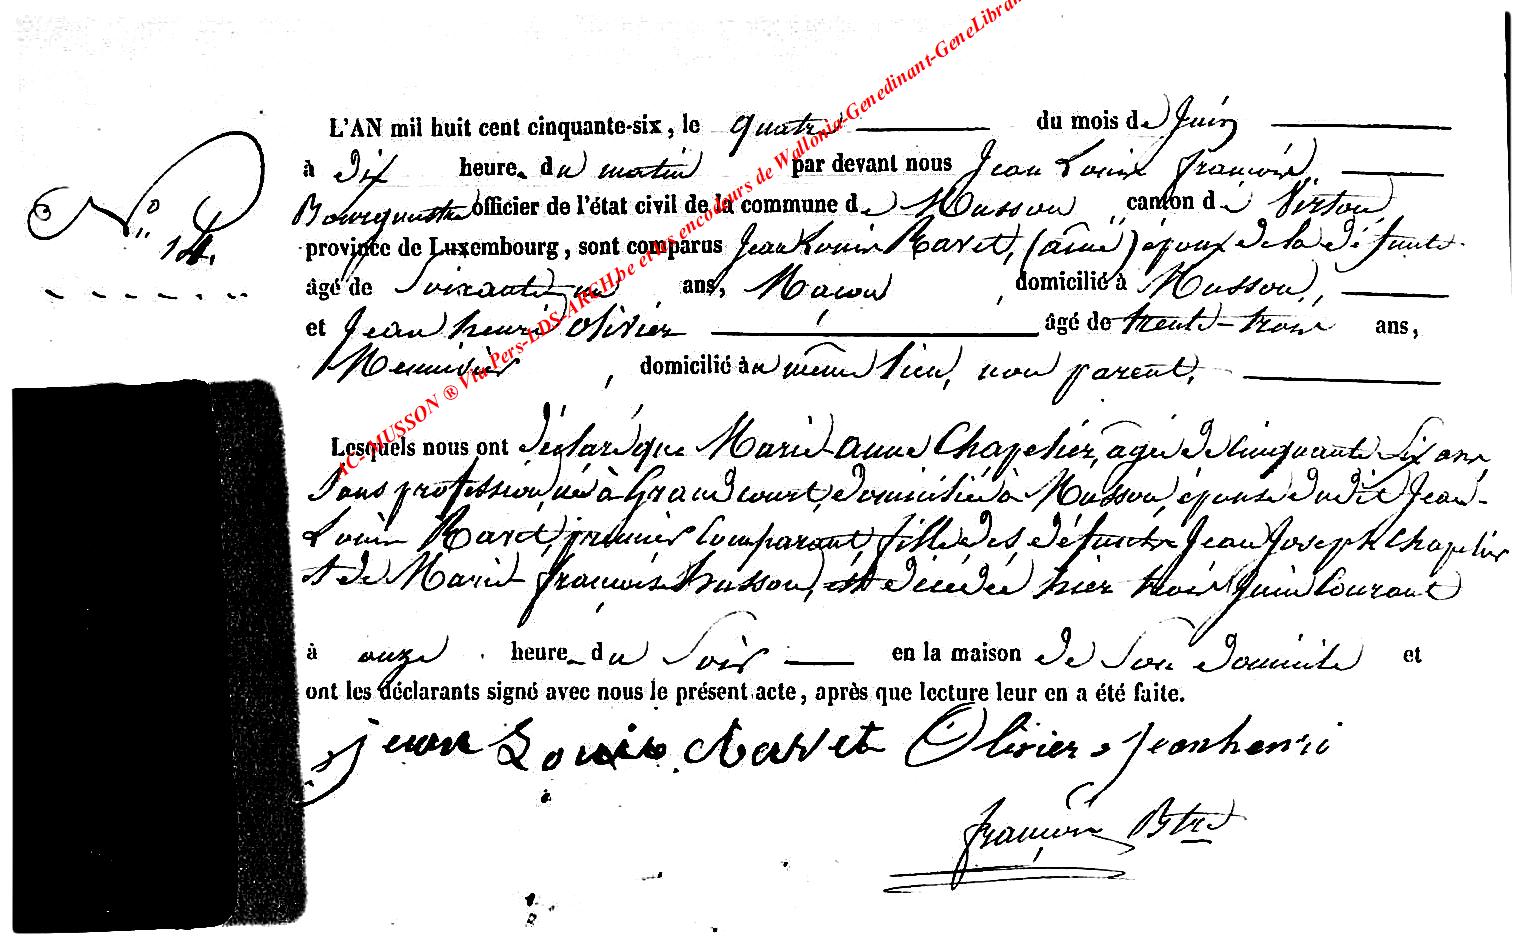 AC-MUSSON ® Via Pers-LDS-ARCH.be et les encodeurs de Wallonia-Genedinant-GeneLibran
N° 14.
L'AN mil huit cent cinquante-six, le quatre du mois de Juin
à dix heure du matin par devant nous Jean Louis françois,
Bourgmestre officier de l'état civil de la commune de Musson canton de Virton,
province de Luxembourg, sont comparus Jean Louis Ravet, (ainé) époux de la défunte
âgé de Soixante un ans, Maçon, domicilié à Musson,
et Jean henri Olivier âgé de trente-trois ans,
Menuisier, domicilié au même lieu, non parent,
Lesquels nous ont déclaré que Marie-anne Chapelier, agée de cinquante Six ans,
Sans profession, née à Grandcourt, domiciliée à Musson, épouse dudit Jean-
Louis Ravet, premier Comparant, fille des défunts Jean Joseph Chapelier
et de Marie françoise husson, est décédée hier trois Juin Courant
à onze heure du Soir en la maison de Son domicile et
ont les déclarants signé avec nous le présent acte, après que lecture leur en a été faite.
jean Louis Ravet Olivier Jeanhenri
françois Btre